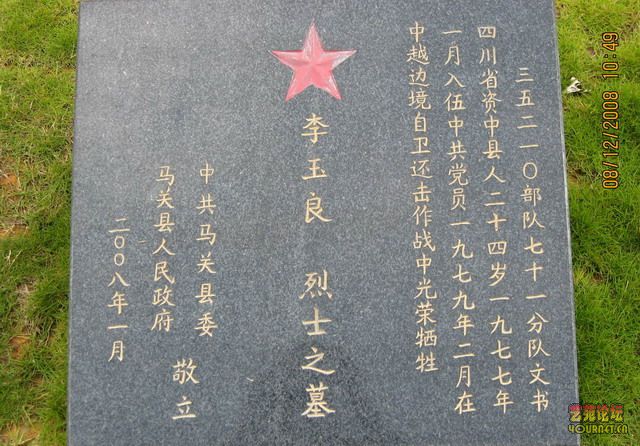 三五二一〇部队七十一分队文书
四川省资中县人二十四岁一九七七年
一月入伍中共党员一九七九年二月在
中越边境自卫还击作战中光荣牺牲
李玉良 烈士之墓
中共马关县委
马关县人民政府
敬立
二〇〇八年一月
08/12/2008 10:49
艺苑论坛
YOURNET.CN